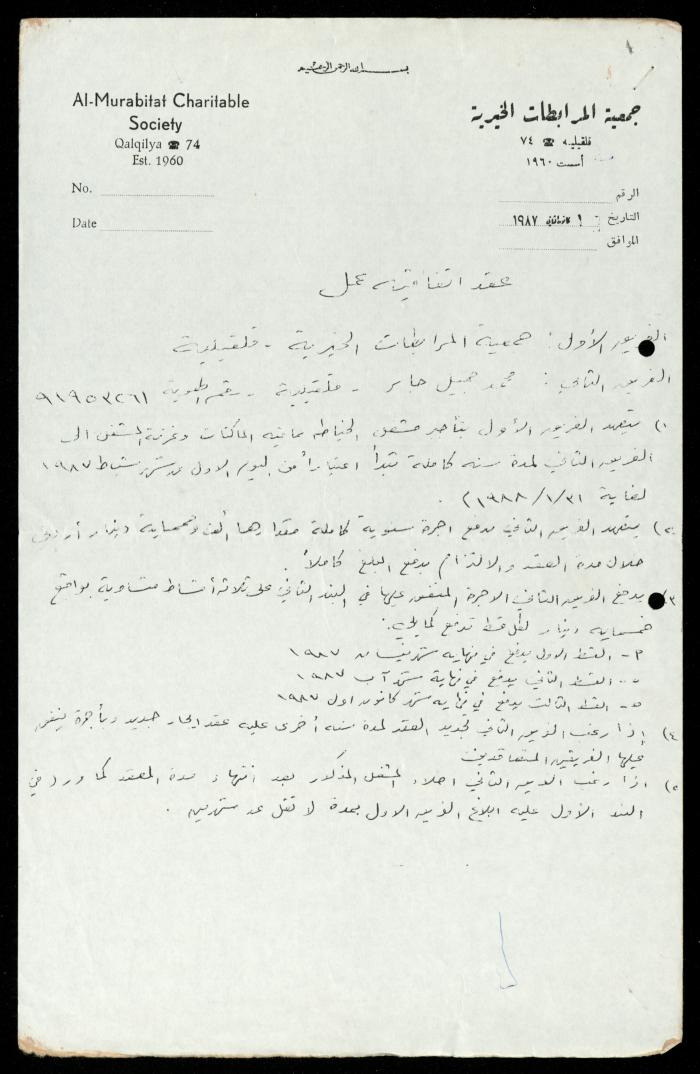 بسم الله الرحمن الرحيم
Al-Murabitat Charitable
Society
Qalqilya ☎ 74
Est. 1960
No.
Date
جمعية المرابطات الخيرية
قلقيليه ☎ ٧٤
أسست ١٩٦٠
الرقم
التاريخ ١ كانون ثاني ١٩٨٧
الموافق
عقد اتفاقية عمل
الفريق الأول : جمعية المرابطات الخيرية - قلقيلية
الفريق الثاني : محمد جميل جابر - قلقيلية - رقم الهوية ٩١٩٥٣٢٦١
١) يتعهد الفريق الأول بتأجير مشغل الخياطة بما فيه الماكنات وغرفة المشغل الى
الفريق الثاني لمدة سنه كاملة تبدأ اعتباراً من اليوم الاول من شهر شباط ١٩٨٧
لغاية ١٩٨٨/١/٣١) .
٢) يتعهد الفريق الثاني بدفع اجرة سنوية كاملة مقدارها ألف وخمسماية دينار أردني
خلال مدة العقد والالتزام بدفع المبلغ كاملاً .
٣) يدفع الفريق الثاني الاجرة المتفق عليها في البند الثاني على ثلاثة أقساط متساوية بواقع
خمسماية دينار لكل قسط تدفع كما يلي :
٢- القسط الاول يدفع في نهاية شهر نيسان ١٩٨٧
ب- القسط الثاني يدفع في نهاية شهر آب ١٩٨٧
ج- القسط الثالث يدفع في نهاية شهر كانون اول ١٩٨٧
٤) إذا رغب الفريق الثاني تجديد العقد لمدة سنه أخرى عليه عقد ايجار جديد وبأجرة يتفق
عليها الفريقين المتعاقدين
٥) اذا رغب الفريق الثاني اخلاء المشغل المذكور بعد انتهاء مدة العقد كما ورد في
البند الأول عليه ابلاغ الفريق الاول بمدة لا تقل عن شهرين .